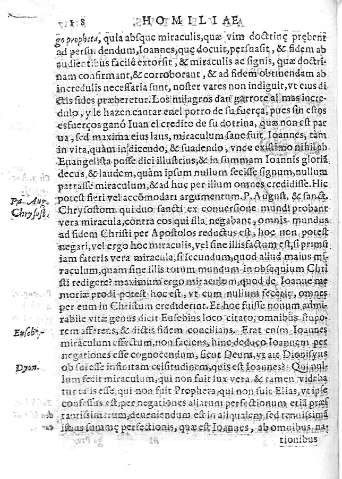 HOMILIAE
go propheta, quia absque miraculis, quæ vim doctrinę pręberent
ad persuadendum, Ioannes, quę docuit, persuasit, & fidem ab
audientibus facilè extorsit, & miraculis ac signis, quæ doctri-
nam confirmant, & corroborant, & ad fidem obtinendam ab
incredulis necessaria sunt, noster vates non indiguit, vt eius di-
ctis fides præberetur. Los milagros dan garrote al mas incre-
dulo, y le hazen cantar en el potro de su fuerça, pues sin estos
esfuerços ganò Iuan el credito de su dotrina, quæ non est par
ua, sed maxima eius laus, miraculum sanè fuit Ioannes, tam
in vita, quàm in dicendo, & suadendo, vnde existimo nihil ab
Euangelista posse dici illustrius, & in summam Ioannis gloriã
decus, & laudem, quàm ipsum nullum fecisse signum, nullum
patrasse miraculum, & ad huc per illum omnes credidisse. Hic
potest fieri vel accõmodari argumentum. P. August, & sanct.
P. Aug.
Chrysost.
Chrysostom. qui duo sancti ex conuersione mundi probant
vera miracula, contra eos qui illa negabant, omnis mundus
ad fidem Christi per Apostolos reductus est, hoc non potest
negari, vel ergo hoc miraculis, vel sine illis factum est, si primũ
iam fateris vera miracula, si secundum, quod aliud maius mi-
raculum, quàm sine illis totum mundum in obsequium Chri
sti redigere? maximum ergo miraculum, quod de Ioanne me
moriæ prodi potest hoc est, vt cum nullum fecerit, omnes
per eum in Christum crederent. Et hoc fuisse nouum admi-
rabile vitæ genus dicit Eusebius loco citato, omnibus stupo-
Euseb.
rem afferens, & dictis fidem concilians. Erat enim Ioannes
miraculum effectum, non faciens, hinc deduco Ioannem per
negationes esse cognoscendum, sicut Deum, vt ait Dionysius
Dyon.
ob suæ infinitam celsitudinem, quis est Ioannes? Qui nul-
lum fecit miraculum, qui non fuit lux vera, & tamen videba
tur talis esse, qui non fuit Propheta, qui non fuit Elias, vt ipse
confessus est, per negationes aliarum perfectionum etiã præs
tantissimarum, deueniendum est in aliqualem, sed tenuissimã
istius summę perfectionis, quæ est Ioannes, ab omnibus na
tionibus